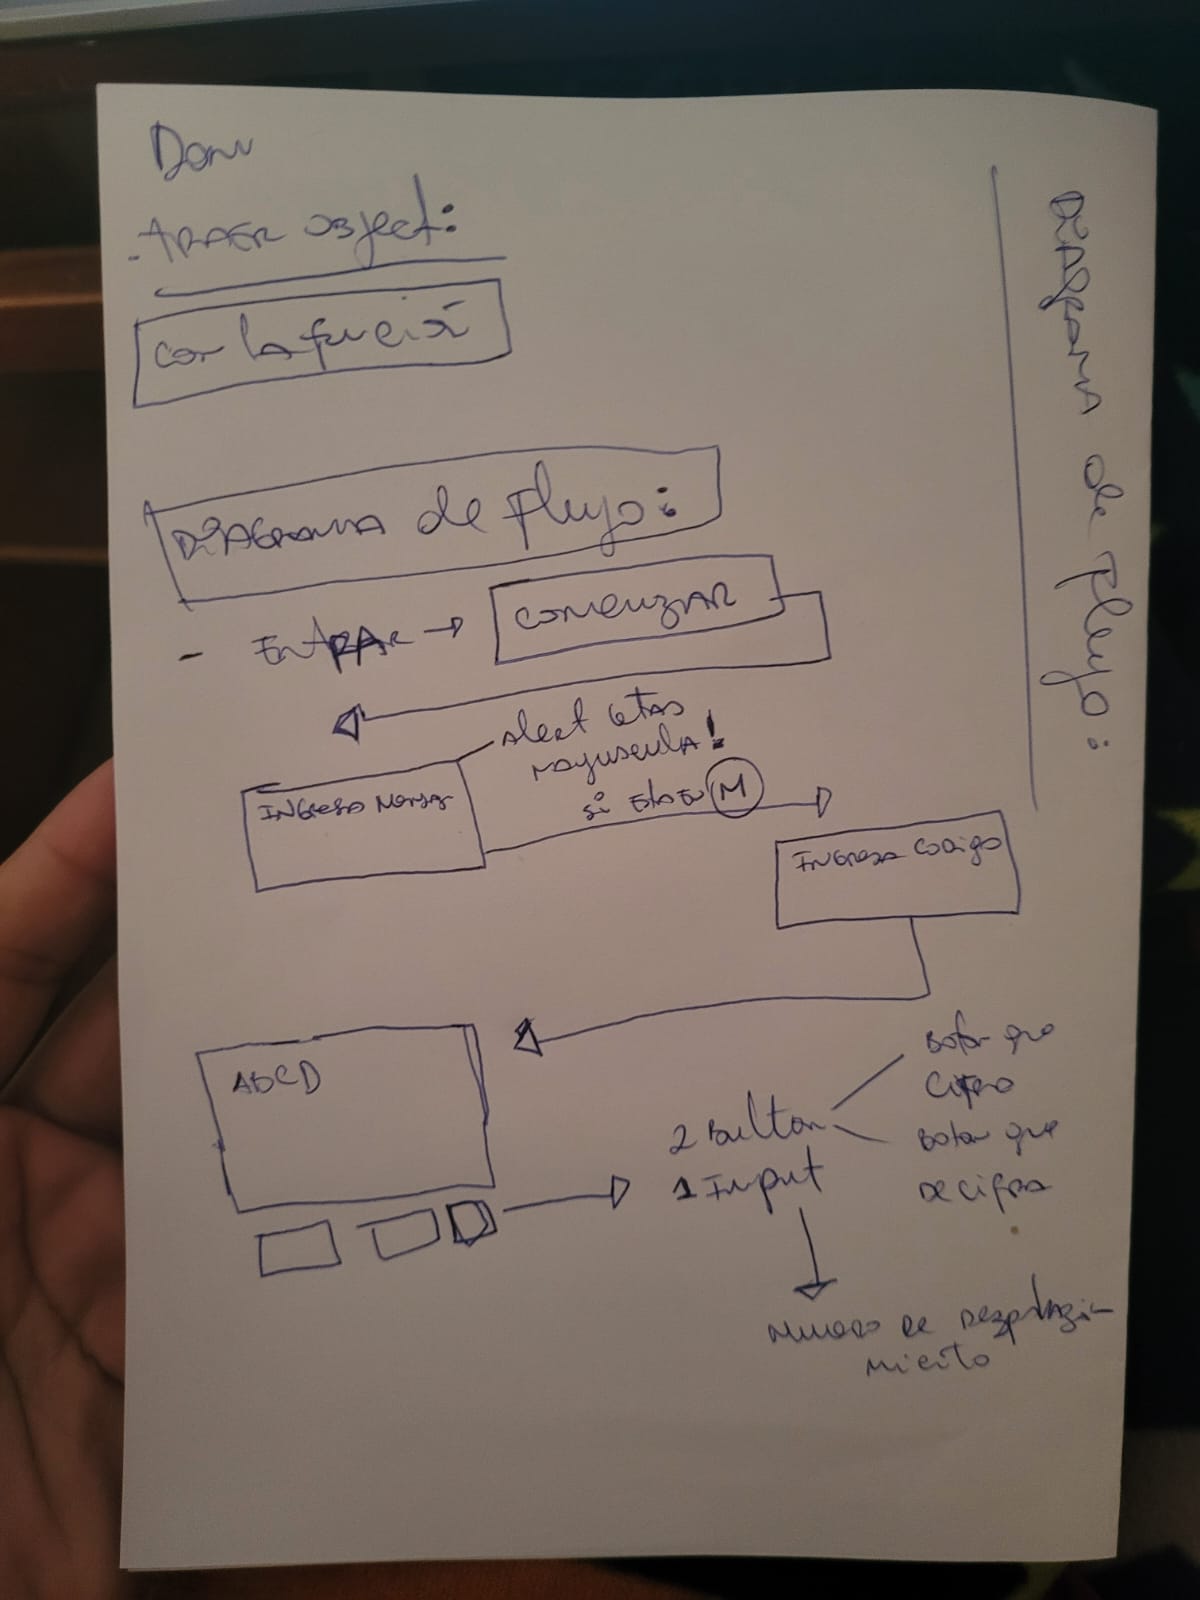 Dom
- TRAER object:
con la fució
DIAGRAMA de Flujo:
- EntRAR → COMENZAR
Alert letas
mayuscula!
si Esta En M
INGRESO Mensa
INGRESA CODIGO
ABCD
2 Button
1 Input
Boton que
Cifra
Boton que
DeCIFRA
numero de Desplazi-
miento
DIAGRAMA de Flujo: